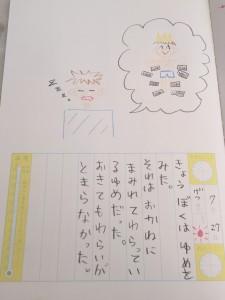 7
27
げつ
きょうぼくはゆめを
みた。
それはおかねに
まみれてわらってい
るゆめだった。
おきてもわらいが
とまらなかった。